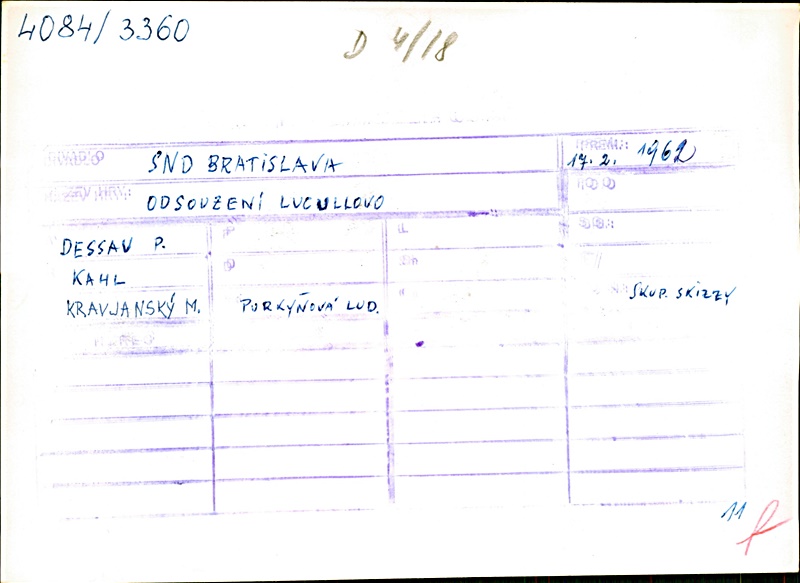 4084/3360
D 4/18
SND BRATISLAVA
17. 2. 1962
ODSOUZENÍ LUCULLOVO
DESSAU P.
KAHL
KRAVJANSKÝ M.
PURKYŇOVÁ LUD.
SKUP. SKIZZY
11